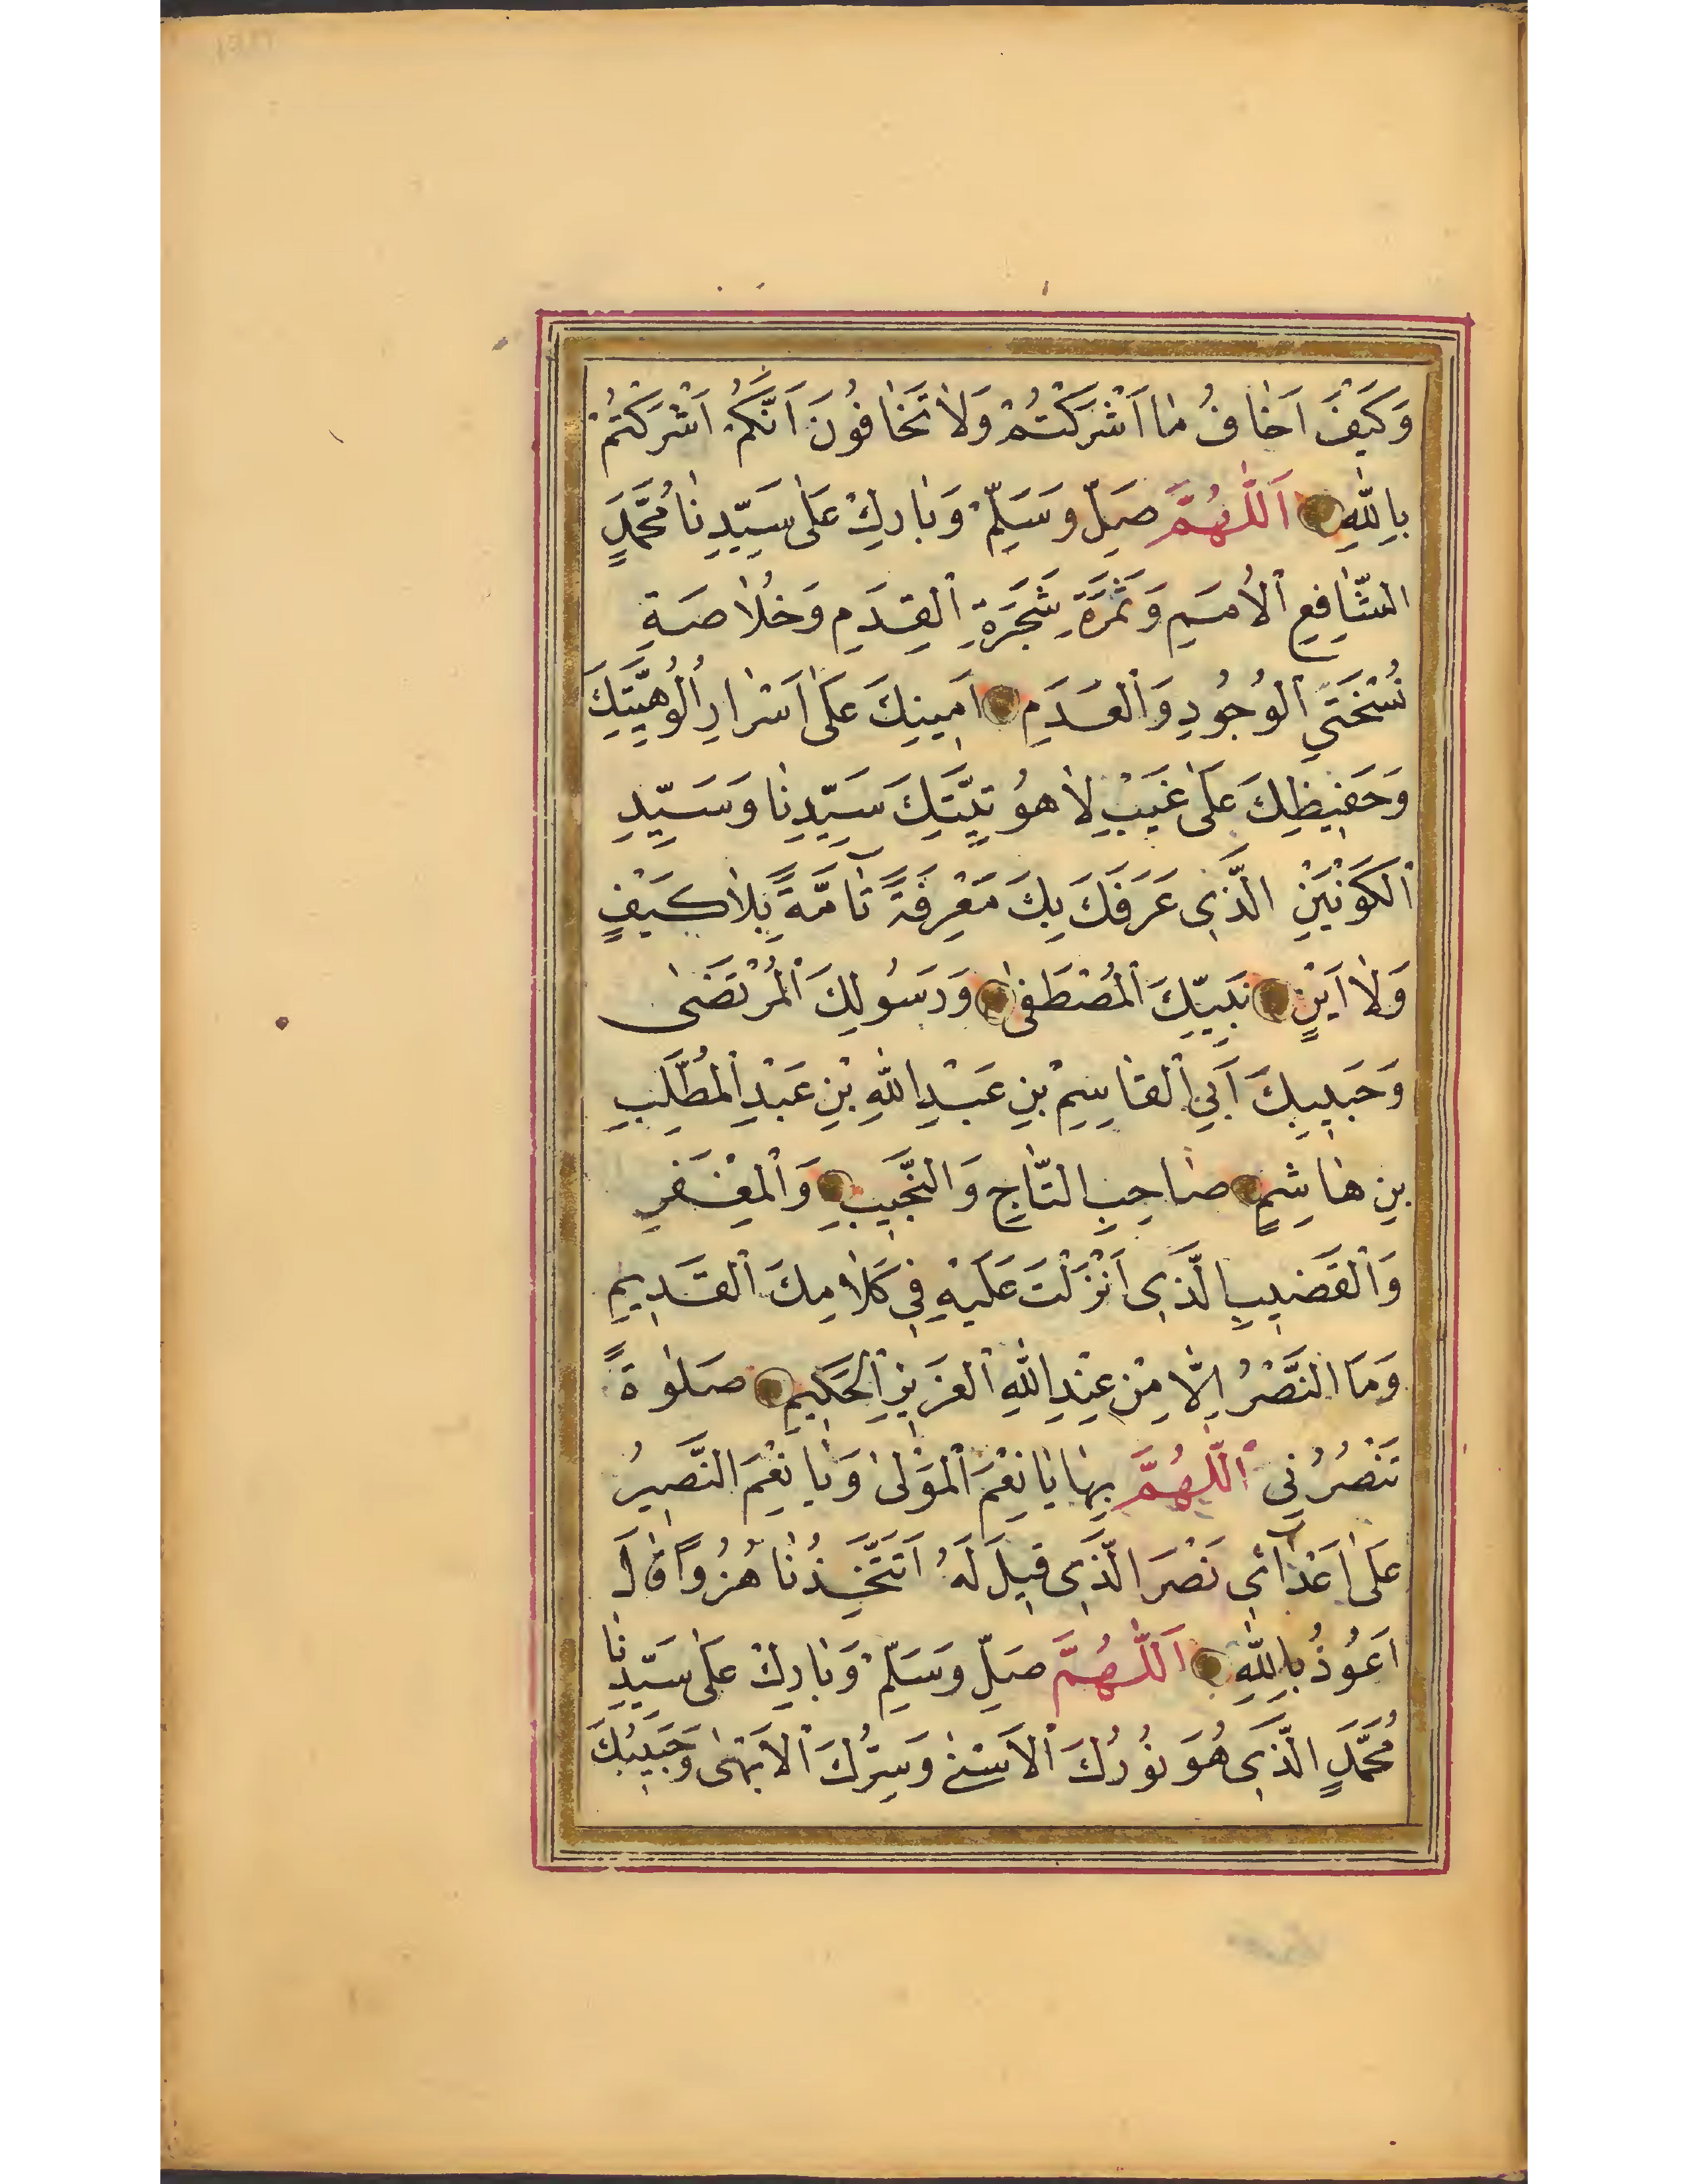 وَكَيْفَ اَخَافُ مَا اَشْرَكْتُمْ وَلَا تَخَافُونَ اَنَّكُمْ اَشْرَكْتُمْ
بِاللّٰهِ اَللّٰهُمَّ صَلِّ وَسَلِّمْ وَبَارِكْ عَلٰى سَيِّدِنَا مُحَمَّدٍ
الشَّافِعِ الْاُمَمِ وَثَمَرَةِ شَجَرَةِ الْقِدَمِ وَخُلَاصَةِ
نُسْخَتَيِ الْوُجُودِ وَالْعَدَمِ اَمِينِكَ عَلٰى اَسْرَارِ اُلُوهِيَّتِكَ
وَحَفِيظِكَ عَلٰى غَيْبِ لَاهُوتِيَّتِكَ سَيِّدِنَا وَسَيِّدِ
الْكَوْنَيْنِ الَّذِى عَرَفَكَ بِكَ مَعْرِفَةً تَآمَّةً بِلَا كَيْفٍ
وَلَا اَيْنٍ نَبِيِّكَ الْمُصْطَفٰى وَرَسُولِكَ الْمُرْتَضٰى
وَحَبِيبِكَ اَبِي الْقَاسِمْ بْنِ عَبْدِ اللّٰهِ بْنِ عَبْدِ الْمُطَّلِبِ
بِنِ هَاشِمٍ صَاحِبِ التَّاجِ وَالنَّجَيبِ وَالْمِغْفَرِ
وَالْقَضِيبِ الَّذِى اَنْزَلْتَ عَلَيْهِ فِي كَلَامِكَ الْقَدِيمِ
وَمَا النَّصْرُ اِلَّا مِنْ عِنْدِ اللّٰهِ الْعَزِيزِ الْحَكِيمِ صَلٰوةً
تَنْصُرُنِي اللّٰهُمَّ بِهَا يَا نِعْمَ الْمَوْلٰى وَيَا نِعْمَ النَّصِيرُ
عَلٰى اَعْدَآئِي نَصْرَ الَّذِى قِيلَ لَهُ اَتَتَّخِذُنَا هُزُوًا قَالَ
اَعُوذُ بِاللّٰهِ اَللّٰهُمَّ صَلِّ وَسَلِّمْ وَبَارِكْ عَلٰى سَيِّدِنَا
مُحَمَّدٍ الَّذِى هُوَ نُورُكَ الْاَسْنٰى وَسِرُّكَ الْاَبْهٰى وَحَبِيبُكَ